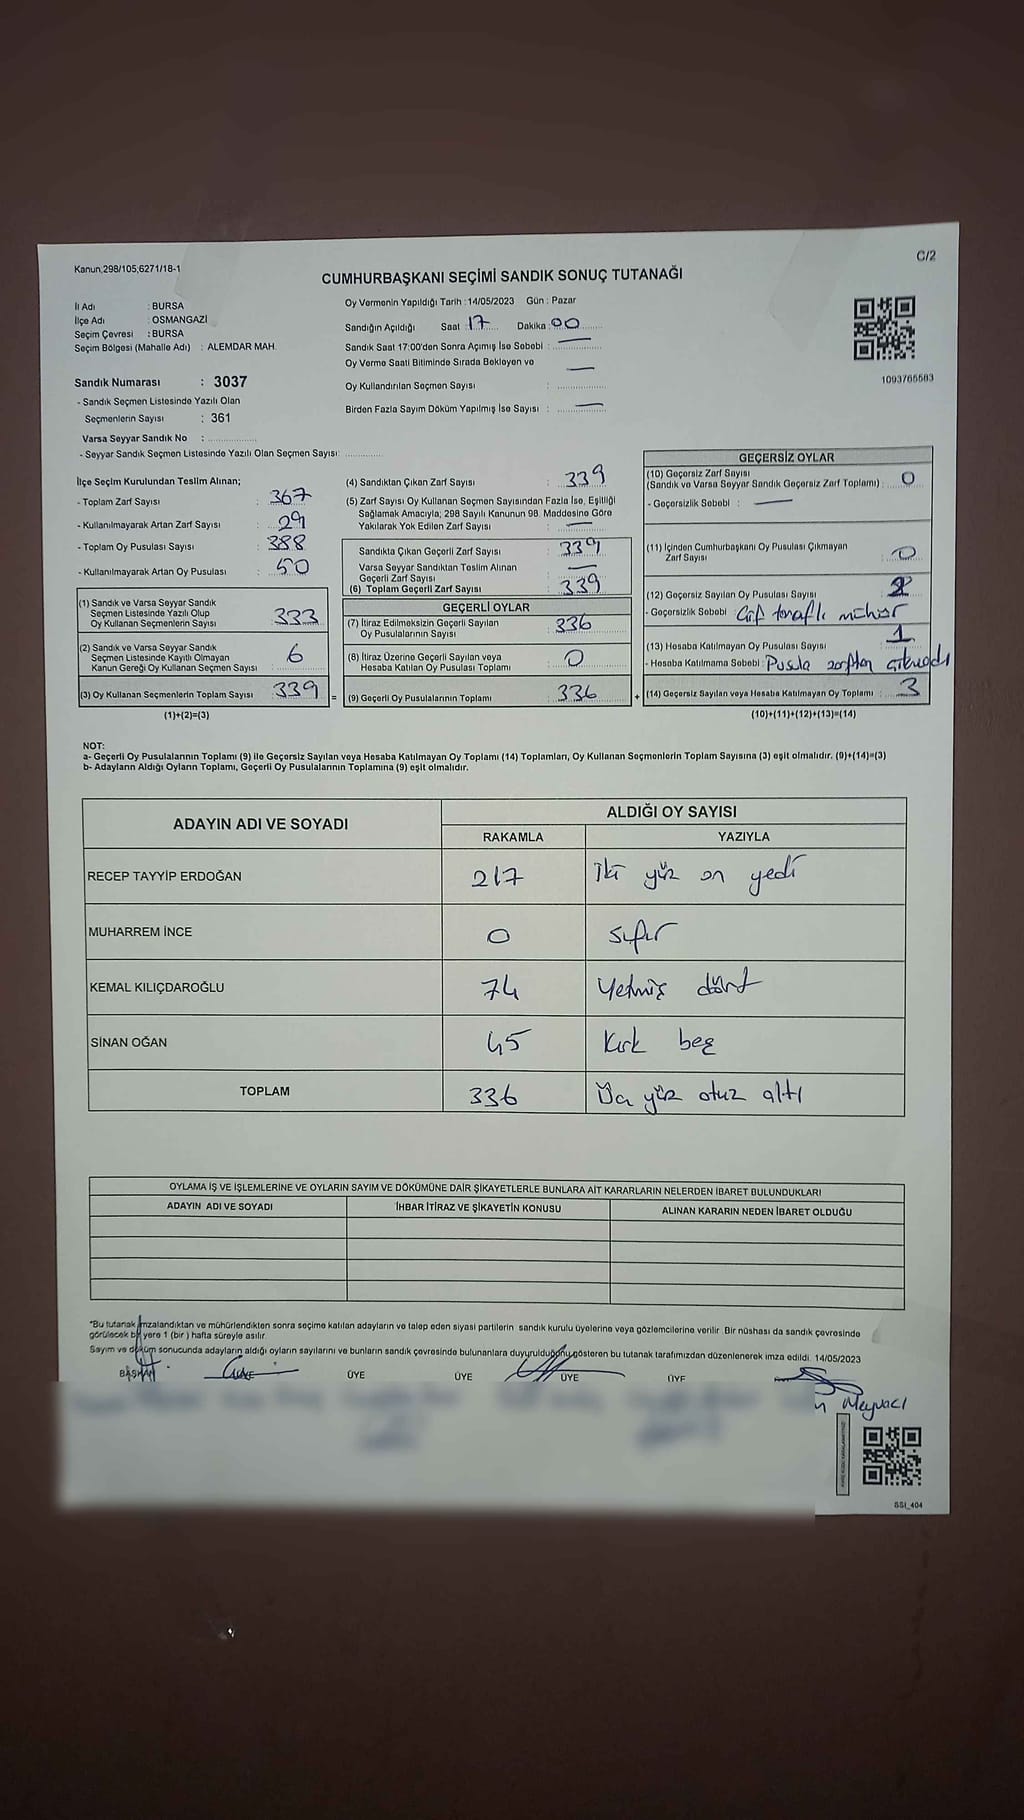 Kanun,298/105,6271/18-1
C/2
CUMHURBAŞKANI SEÇİMİ SANDIK SONUÇ TUTANAĞI
İl Adı : BURSA
İlçe Adı : OSMANGAZİ
Seçim Çevresi : BURSA
Seçim Bölgesi (Mahalle Adı) : ALEMDAR MAH.
Oy Vermenin Yapıldığı Tarih : 14/05/2023 Gün : Pazar
Sandığın Açıldığı Saat : 17 Dakika : 00
Sandık Saat 17:00'den Sonra Açımış İse Sebebi : —
Oy Verme Saati Bitiminde Sırada Bekleyen ve —
Oy Kullandırılan Seçmen Sayısı :
Birden Fazla Sayım Döküm Yapılmış İse Sayısı : —
1093765583
Sandık Numarası : 3037
- Sandık Seçmen Listesinde Yazılı Olan
Seçmenlerin Sayısı : 361
Varsa Seyyar Sandık No :
- Seyyar Sandık Seçmen Listesinde Yazılı Olan Seçmen Sayısı:
İlçe Seçim Kurulundan Teslim Alınan;
- Toplam Zarf Sayısı : 367
- Kullanılmayarak Artan Zarf Sayısı : 29
- Toplam Oy Pusulası Sayısı : 388
- Kullanılmayarak Artan Oy Pusulası : 50
(1) Sandık ve Varsa Seyyar Sandık
Seçmen Listesinde Yazılı Olup
Oy Kullanan Seçmenlerin Sayısı 333
(2) Sandık ve Varsa Seyyar Sandık
Seçmen Listesinde Kayıtlı Olmayan
Kanun Gereği Oy Kullanan Seçmen Sayısı 6
(3) Oy Kullanan Seçmenlerin Toplam Sayısı 339 =
(1)+(2)=(3)
(4) Sandıktan Çıkan Zarf Sayısı : 339
(5) Zarf Sayısı Oy Kullanan Seçmen Sayısından Fazla İse, Eşitliği
Sağlamak Amacıyla; 298 Sayılı Kanunun 98. Maddesine Göre
Yakılarak Yok Edilen Zarf Sayısı : —
Sandıkta Çıkan Geçerli Zarf Sayısı : 339
Varsa Seyyar Sandıktan Teslim Alınan
Geçerli Zarf Sayısı : —
(6) Toplam Geçerli Zarf Sayısı : 339
GEÇERLİ OYLAR
(7) İtiraz Edilmeksizin Geçerli Sayılan
Oy Pusulalarının Sayısı : 336
(8) İtiraz Üzerine Geçerli Sayılan veya
Hesaba Katılan Oy Pusulası Toplamı : 0
(9) Geçerli Oy Pusulalarının Toplamı : 336 +
GEÇERSİZ OYLAR
(10) Geçersiz Zarf Sayısı
(Sandık ve Varsa Seyyar Sandık Geçersiz Zarf Toplamı) : 0
- Geçersizlik Sebebi : —
(11) İçinden Cumhurbaşkanı Oy Pusulası Çıkmayan
Zarf Sayısı : 0
(12) Geçersiz Sayılan Oy Pusulası Sayısı : 2
- Geçersizlik Sebebi : Çift taraflı mühür
(13) Hesaba Katılmayan Oy Pusulası Sayısı : 1
- Hesaba Katılmama Sebebi : Pusula zarftan çıkmadı
(14) Geçersiz Sayılan veya Hesaba Katılmayan Oy Toplamı : 3
(10)+(11)+(12)+(13)=(14)
NOT:
a- Geçerli Oy Pusulalarının Toplamı (9) ile Geçersiz Sayılan veya Hesaba Katılmayan Oy Toplamı (14) Toplamları, Oy Kullanan Seçmenlerin Toplam Sayısına (3) eşit olmalıdır. (9)+(14)=(3)
b- Adayların Aldığı Oyların Toplamı, Geçerli Oy Pusulalarının Toplamına (9) eşit olmalıdır.
ADAYIN ADI VE SOYADI ALDIĞI OY SAYISI
RAKAMLA YAZIYLA
RECEP TAYYİP ERDOĞAN 217 iki yüz on yedi
MUHARREM İNCE 0 sıfır
KEMAL KILIÇDAROĞLU 74 Yetmiş dört
SİNAN OĞAN 45 Kırk beş
TOPLAM 336 Üç yüz otuz altı
OYLAMA İŞ VE İŞLEMLERİNE VE OYLARIN SAYIM VE DÖKÜMÜNE DAİR ŞİKAYETLERLE BUNLARA AİT KARARLARIN NELERDEN İBARET BULUNDUKLARI
ADAYIN ADI VE SOYADI İHBAR İTİRAZ VE ŞİKAYETİN KONUSU ALINAN KARARIN NEDEN İBARET OLDUĞU
*Bu tutanak imzalandıktan ve mühürlendikten sonra seçime katılan adayların ve talep eden siyasi partilerin sandık kurulu üyelerine veya gözlemcilerine verilir. Bir nüshası da sandık çevresinde
görülecek bir yere 1 (bir) hafta süreyle asılır.
Sayım ve döküm sonucunda adayların aldığı oyların sayılarını ve bunların sandık çevresinde bulunanlara duyurulduğunu gösteren bu tutanak tarafımızdan düzenlenerek imza edildi. 14/05/2023
BAŞKAN ÜYE ÜYE ÜYE ÜYE
Meyvacı
SSI_404